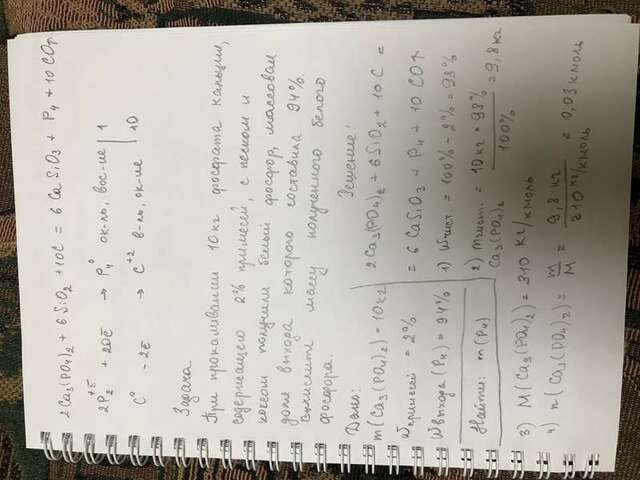 2Ca₃(PO₄)₂ + 6SiO₂ + 10C = 6CaSiO₃ + P₄ + 10CO↑
2P₂⁺⁵ + 20ē → P₄⁰ ок-ль, вос-ие | 1
C⁰ - 2ē → C⁺² в-ль, ок-ие | 10
Задача
При прокаливании 10 кг фосфата кальция,
содержащего 2% примесей, с песком и
коксом получили белый фосфор, массовая
доля выхода которого составила 94%.
Вычислите массу полученного белого
фосфора.
Дано:
m(Ca₃(PO₄)₂) = 10 кг
W примесей = 2%
W выхода (P₄) = 94%
Найти: m(P₄)
Решение:
2Ca₃(PO₄)₂ + 6SiO₂ + 10C =
= 6CaSiO₃ + P₄ + 10CO↑
1) W чист. = 100% - 2% = 98%
2) m чист. Ca₃(PO₄)₂ = 10 кг * 98% / 100% = 9,8 кг
3) M(Ca₃(PO₄)₂) = 310 кг/кмоль
4) n(Ca₃(PO₄)₂) = m/M = 9,8 кг / 310 кг/кмоль = 0,03 кмоль